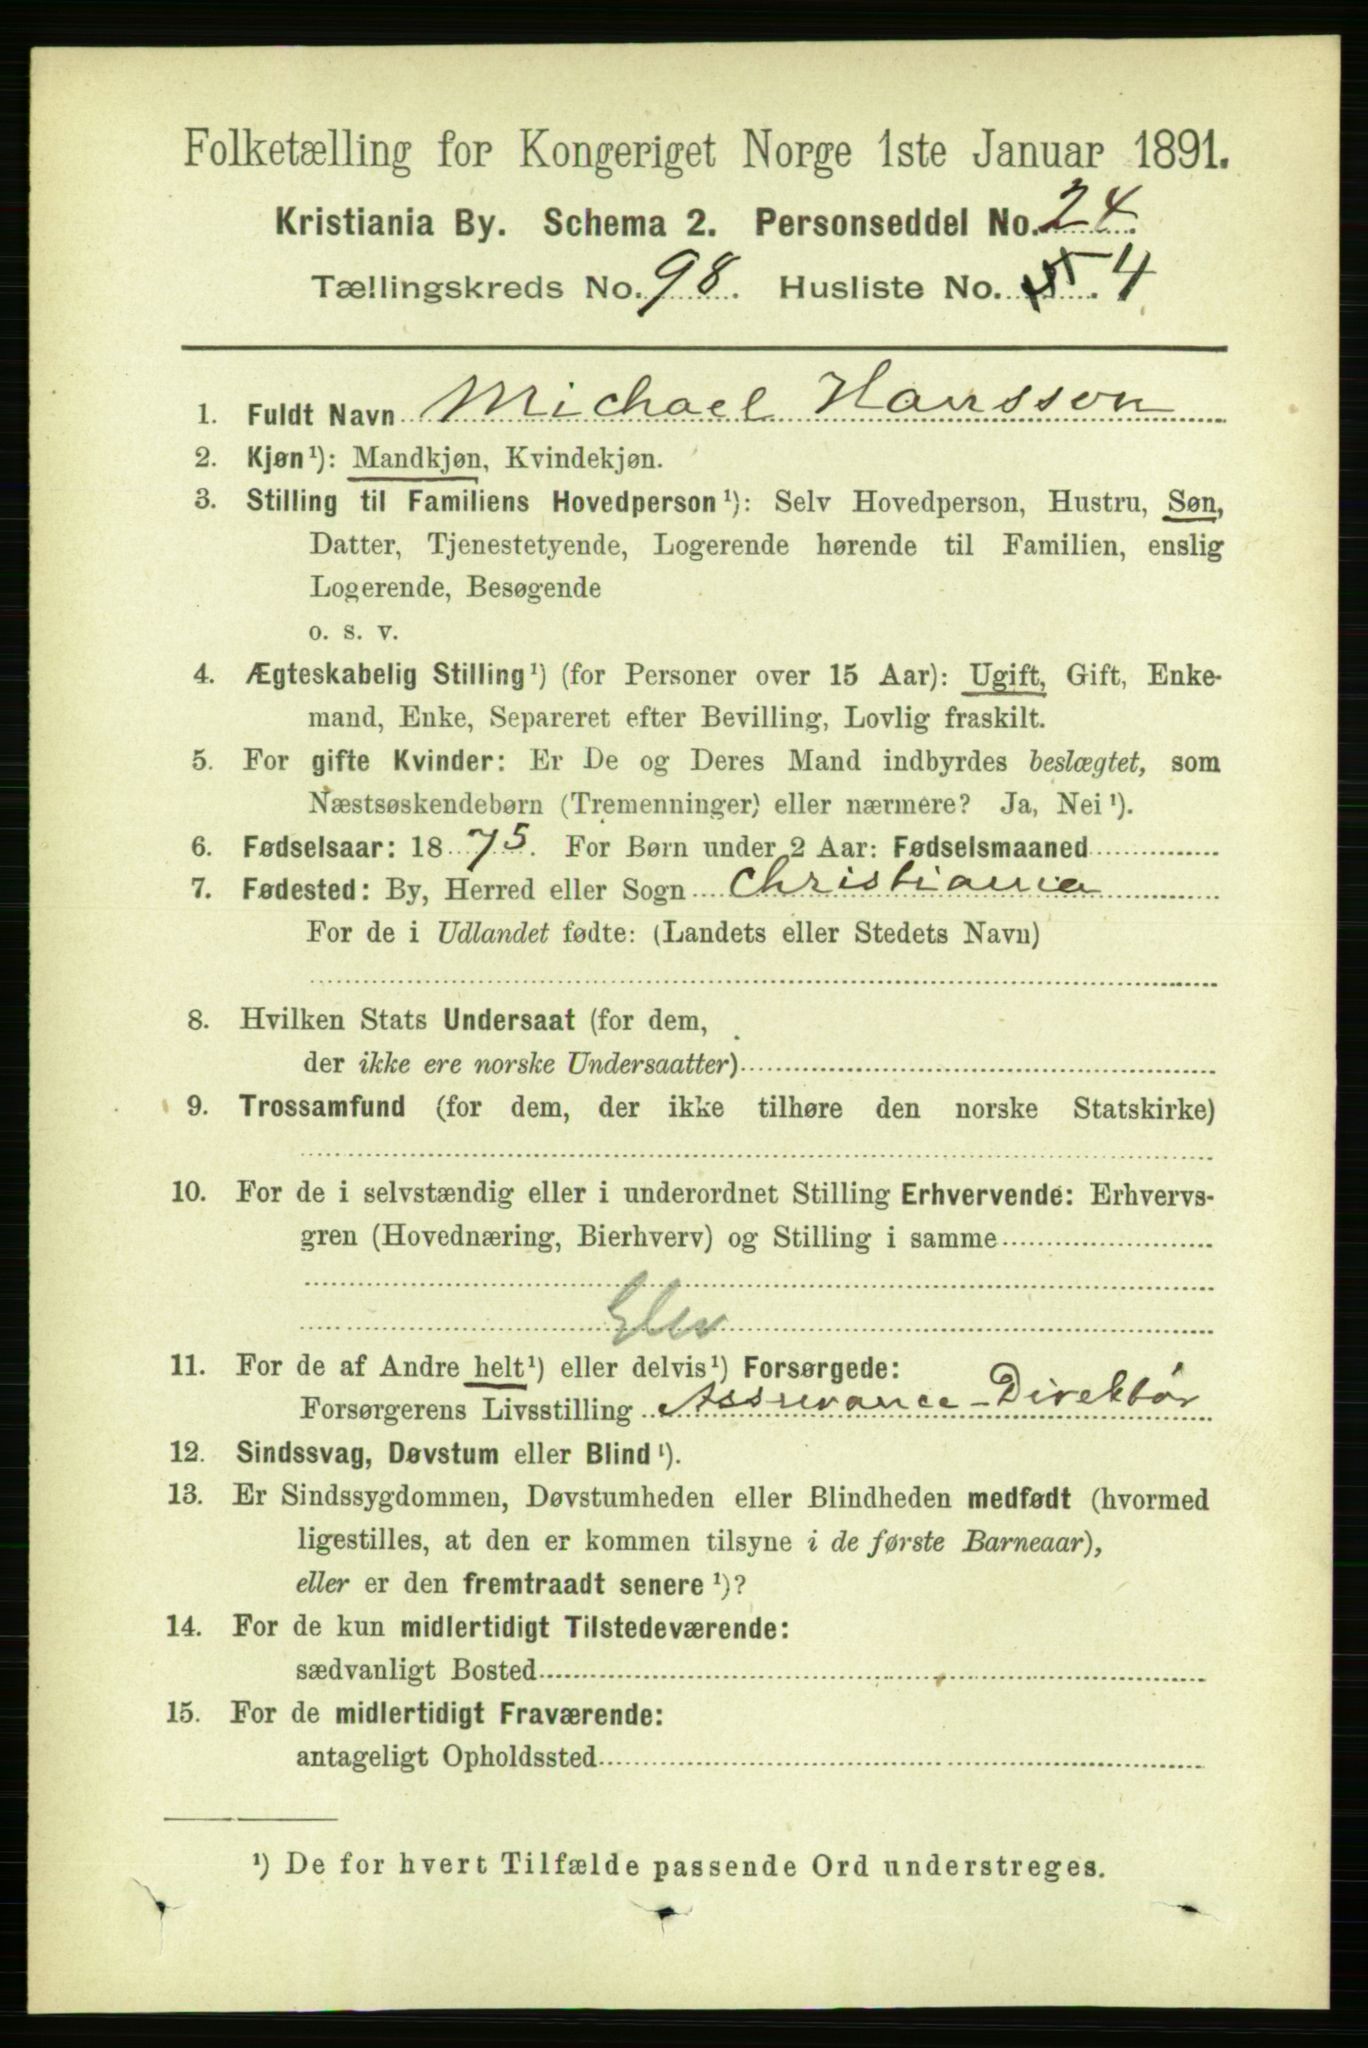 Folketælling for Kongeriget Norge 1ste Januar 1891.
Kristiania By. Schema 2. Personseddel No. 24.
Tællingskreds No. 98. Husliste No. 5. 4
1. Fuldt Navn Michael Hansson
2. Kjøn¹): Mandkjøn, Kvindekjøn.
3. Stilling til Familiens Hovedperson¹): Selv Hovedperson, Hustru, Søn,
Datter, Tjenestetyende, Logerende hørende til Familien, enslig
Logerende, Besøgende
o. s. v.
4. Ægteskabelig Stilling¹) (for Personer over 15 Aar): Ugift, Gift, Enke-
mand, Enke, Separeret efter Bevilling, Lovlig fraskilt.
5. For gifte Kvinder: Er De og Deres Mand indbyrdes beslægtet, som
Næstsøskendebørn (Tremenninger) eller nærmere? Ja, Nei¹).
6. Fødselsaar: 1875. For Børn under 2 Aar: Fødselsmaaned
7. Fødested: By, Herred eller Sogn Christiania
For de i Udlandet fødte: (Landets eller Stedets Navn)
8. Hvilken Stats Undersaat (for dem,
der ikke ere norske Undersaatter)
9. Trossamfund (for dem, der ikke tilhøre den norske Statskirke)
10. For de i selvstændig eller i underordnet Stilling Erhvervende: Erhvervs-
gren (Hovednæring, Bierhverv) og Stilling i samme
Elev
11. For de af Andre helt¹) eller delvis¹) Forsørgede:
Forsørgerens Livsstilling Assurance-Direktör
12. Sindssvag, Døvstum eller Blind¹).
13. Er Sindssygdommen, Døvstumheden eller Blindheden medfødt (hvormed
ligestilles, at den er kommen tilsyne i de første Barneaar),
eller er den fremtraadt senere¹)?
14. For de kun midlertidigt Tilstedeværende:
sædvanligt Bosted
15. For de midlertidigt Fraværende:
antageligt Opholdssted
¹) De for hvert Tilfælde passende Ord understreges.